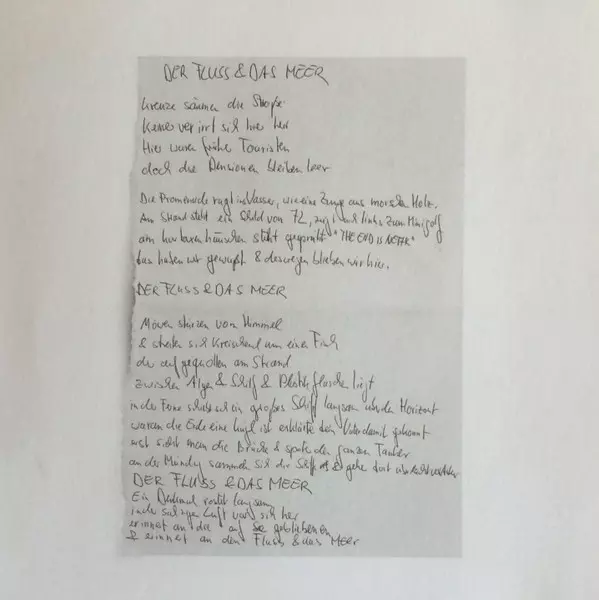 DER FLUSS & DAS MEER
Kreuze säumen die Straße
Keiner verirrt sich hier her
Hier waren früher Touristen
doch die Pensionen bleiben leer
Die Promenade ragt ins Wasser, wie eine Zunge aus morschem Holz.
Am Strand steht ein Schild von 72, zeigt nach links zum Minigolf
am kurtaxenhäuschen steht gesprüht "THE END IS NEAR"
das haben wir gewusst & deswegen blieben wir hier.
DER FLUSS & DAS MEER
Möwen stürzen vom Himmel
& streiten sich kreischend um einen Fisch
der aufgequollen am Strand
zwischen Algen & Schilf & Plastikflaschen liegt
in der Ferne schiebt sich ein großes Schiff langsam über den Horizont
warum die Erde eine Kugel ist erklärte dein Vater damit
erst sieht man die Brücke & später den ganzen Tanker
an der Mündung sammeln sich die Schiffe & gehen dort über Nacht vor Anker
DER FLUSS & DAS MEER
Ein Denkmal rostet langsam
in der salzigen Luft vor sich her
erinnert an die auf See gebliebenen
& erinnert an den Fluss & das Meer